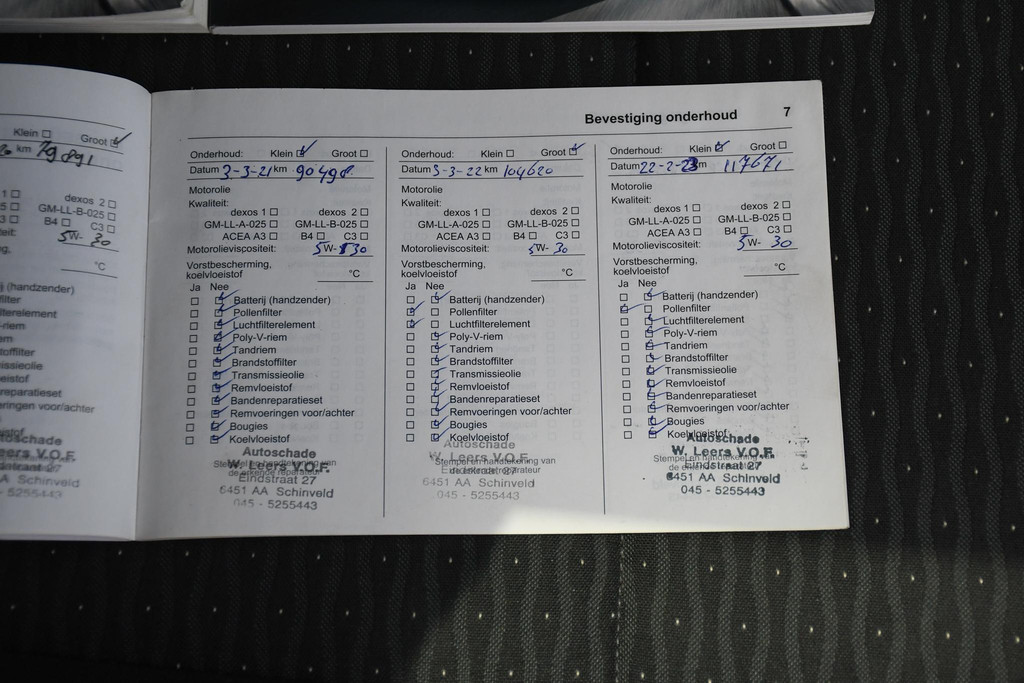 Klein ☐ Groot ☑
km 79 891
1 ☐ dexos 2 ☐
5 ☐ GM-LL-B-025 ☐
3 ☐ B4 ☐ C3 ☐
5W- 30
°C
(handzender)
filter
filterelement
-riem
offilter
nissieolie
eistof
reparatieset
eringen voor/achter
W. Leers V.O.F.
6451 AA Schinveld
- 5255443
Bevestiging onderhoud 7
Onderhoud: Klein ☑ Groot ☐
Datum 3-3-21 km 90498
Motorolie
Kwaliteit:
dexos 1 ☐ dexos 2 ☐
GM-LL-A-025 ☐ GM-LL-B-025 ☐
ACEA A3 ☐ B4 ☐ C3 ☐
Motorolieviscositeit: 5W- 30
Vorstbescherming,
koelvloeistof °C
Ja Nee
☐ ☑ Batterij (handzender)
☐ ☑ Pollenfilter
☐ ☑ Luchtfilterelement
☐ ☑ Poly-V-riem
☐ ☑ Tandriem
☐ ☑ Brandstoffilter
☐ ☑ Transmissieolie
☐ ☑ Remvloeistof
☐ ☑ Bandenreparatieset
☐ ☑ Remvoeringen voor/achter
☐ ☑ Bougies
☐ ☑ Koelvloeistof
Stempel en handtekening van
de erkende reparateur
Autoschade
W. Leers V.O.F.
Eindstraat 27
6451 AA Schinveld
045 - 5255443
Onderhoud: Klein ☐ Groot ☑
Datum 3-3-22 km 104620
Motorolie
Kwaliteit:
dexos 1 ☐ dexos 2 ☐
GM-LL-A-025 ☐ GM-LL-B-025 ☐
ACEA A3 ☐ B4 ☐ C3 ☐
Motorolieviscositeit: 5W- 30
Vorstbescherming,
koelvloeistof °C
Ja Nee
☐ ☑ Batterij (handzender)
☑ ☐ Pollenfilter
☑ ☐ Luchtfilterelement
☐ ☑ Poly-V-riem
☐ ☑ Tandriem
☐ ☑ Brandstoffilter
☐ ☑ Transmissieolie
☐ ☑ Remvloeistof
☐ ☑ Bandenreparatieset
☐ ☑ Remvoeringen voor/achter
☐ ☑ Bougies
☐ ☑ Koelvloeistof
Stempel en handtekening van
de erkende reparateur
Autoschade
W. Leers V.O.F.
Eindstraat 27
6451 AA Schinveld
045 - 5255443
Onderhoud: Klein ☑ Groot ☐
Datum 22-2-23 km 117671
Motorolie
Kwaliteit:
dexos 1 ☐ dexos 2 ☐
GM-LL-A-025 ☐ GM-LL-B-025 ☐
ACEA A3 ☐ B4 ☐ C3 ☐
Motorolieviscositeit: 5W- 30
Vorstbescherming,
koelvloeistof °C
Ja Nee
☐ ☑ Batterij (handzender)
☑ ☐ Pollenfilter
☐ ☑ Luchtfilterelement
☐ ☑ Poly-V-riem
☐ ☑ Tandriem
☐ ☑ Brandstoffilter
☐ ☑ Transmissieolie
☐ ☑ Remvloeistof
☐ ☑ Bandenreparatieset
☐ ☑ Remvoeringen voor/achter
☐ ☑ Bougies
☐ ☑ Koelvloeistof
Stempel en handtekening van
de erkende reparateur
Autoschade
W. Leers V.O.F.
Eindstraat 27
6451 AA Schinveld
045 - 5255443